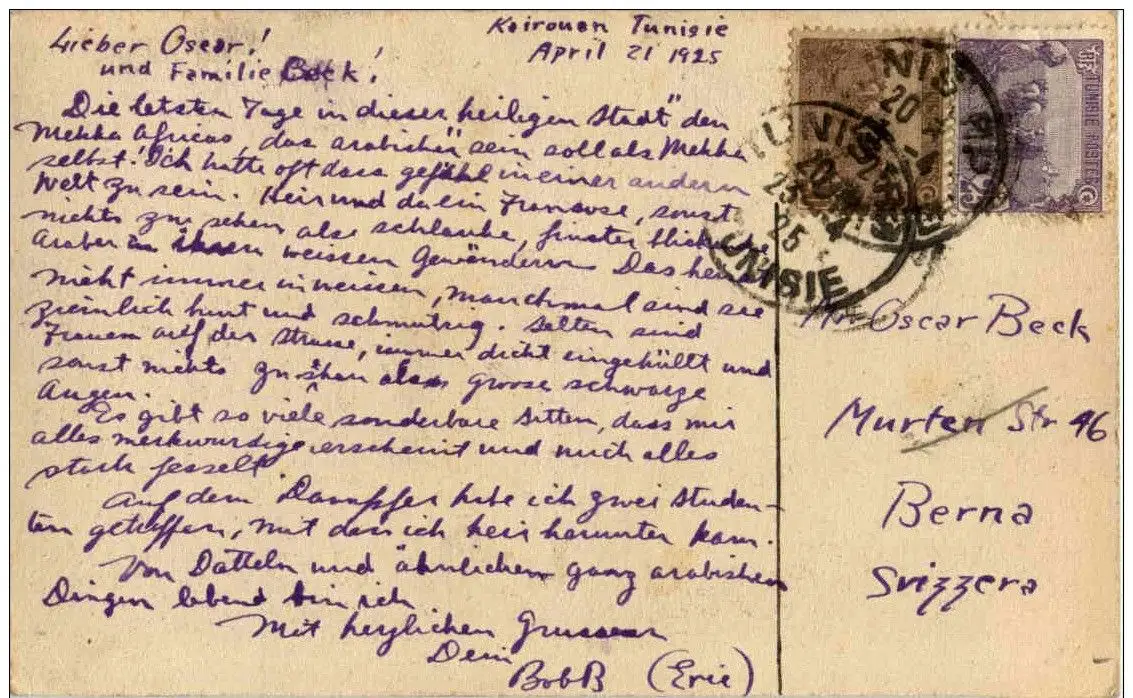 Kairouan Tunisie
April 21 1925
Lieber Oscar!
und Familie Beck!
Die letsten Tage in dieser heiligen Stadt" den
Mekka Africas, das arabisher sein soll als Mekka
selbst! Ich hatte oft dass gefühl in einer andern
Welt zu sein. Heir und da ein Franzose, sonst
nichts zu sehen als schlanke, finster
Araber in ihren weissen Gewändern. Das
nicht immer in weissen, manchmal sind sie
ziemlich bunt und schmutzig. Selten sind
Frauen auf der Strasse, immer dicht eingehüllt und
sonst nichts zu sehen als grosse schwarze
Augen.
Es gibt so viele sonderbare Sitten, dass mir
alles merkwurdige erscheint und mich alles
stark fesselt.
Auf dem Dampfer habe ich zwei Studen-
ten getroffen, mit den ich heir herunter kam.
Von Datteln und ähnlichen ganz arabishen
Dingen lebend bin ich
Mit herzlichen Grussen
Dein
BobB (Eric)
TUNIS
20
25
TUNISIE
TUNIS R.P.
20
TUNISIE POSTES
25 c
Mr Oscar Beck
Murten Str 96
Berna
Svizzera